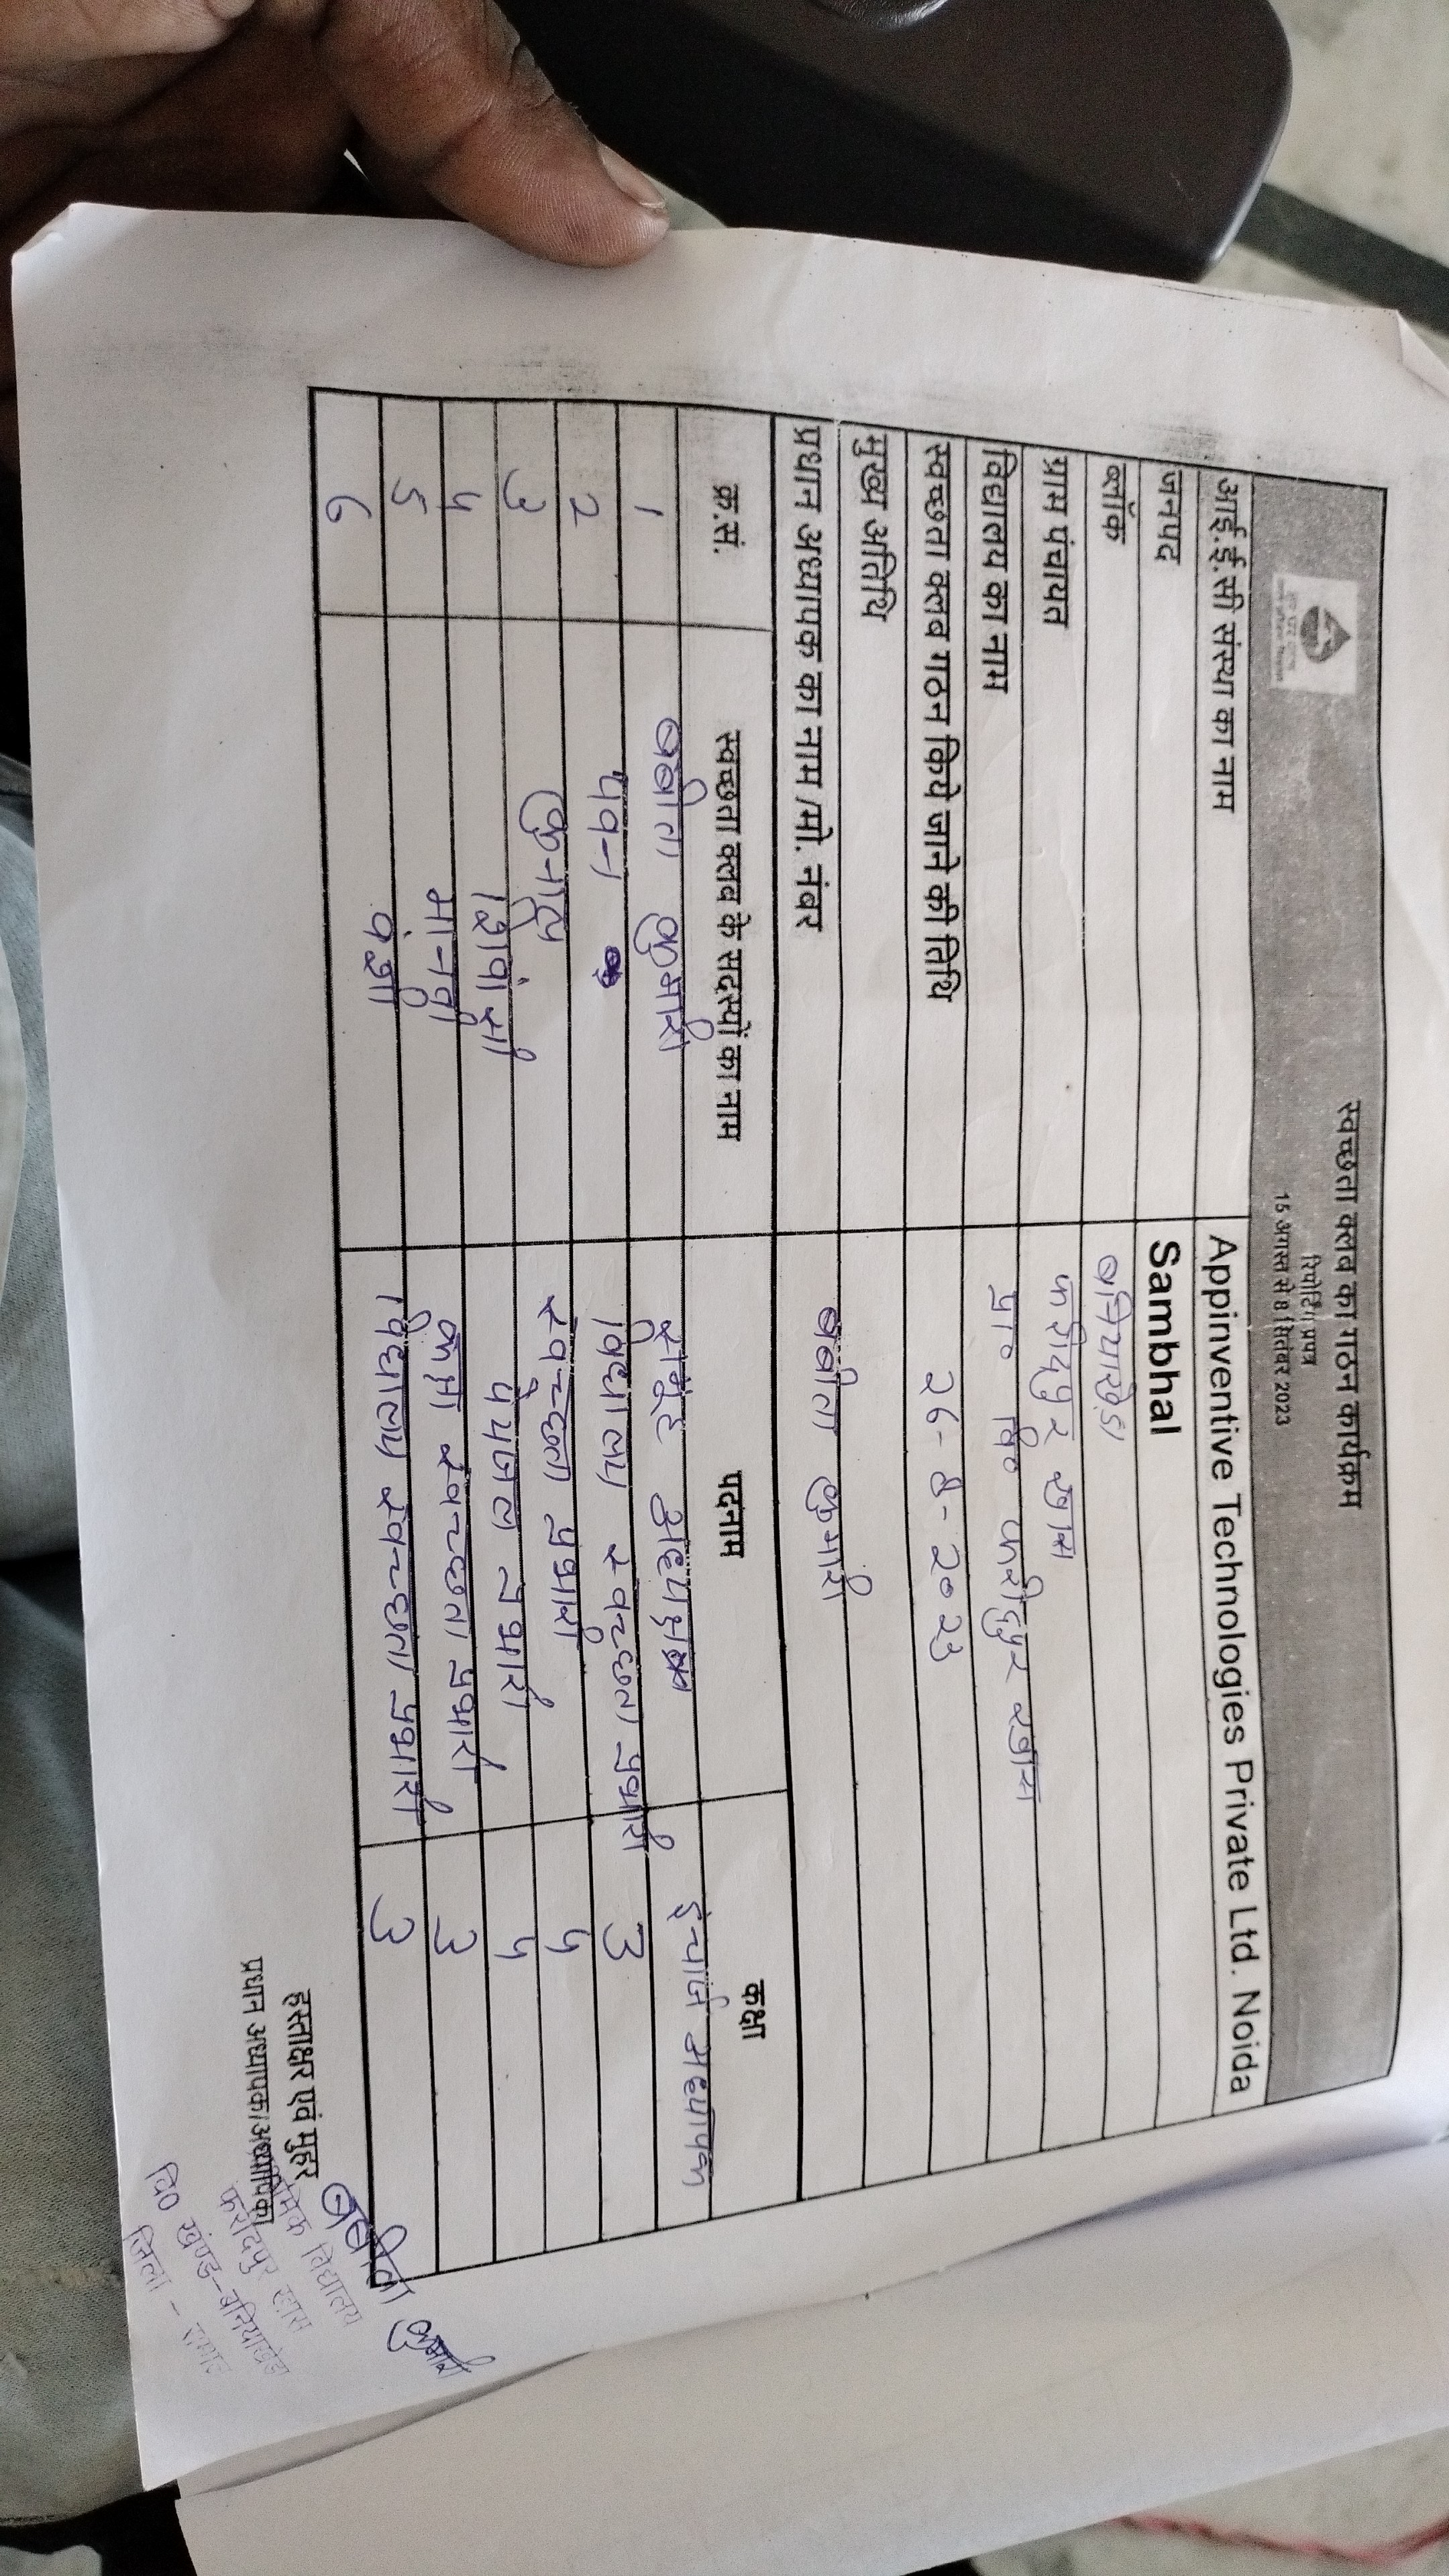 स्वच्छता क्लब का गठन कार्यक्रम
रिपोर्टिंग प्रपत्र
15 अगस्त से 8 सितंबर 2023
आई.ई.सी संस्था का नाम Appinventive Technologies Private Ltd. Noida
जनपद Sambhal
ब्लॉक बनियाखेडा
ग्राम पंचायत फरीदपुर खास
विद्यालय का नाम प्रा० वि० फरीदपुर खास
स्वच्छता क्लब गठन किये जाने की तिथि 26-8-2023
मुख्य अतिथि
प्रधान अध्यापक का नाम/मो. नंबर बबीता कुमारी
क्र.सं. स्वच्छता क्लब के सदस्यों का नाम पदनाम कक्षा
1 बबीता कुमारी इंचार्ज अध्यापक
2 पवन विद्यालय स्वच्छता प्रभारी 3
3 कुनाल स्वच्छता प्रभारी 4
4 शिवांशी पेयजल प्रभारी 4
5 मानवी कक्षा स्वच्छता प्रभारी 3
6 वंशा विद्यालय स्वच्छता प्रभारी 3
हस्ताक्षर एवं मुहर
प्रधान अध्यापक/अध्यापिका
बबीता कुमारी
विद्यालय
फरीदपुर खास
वि० खण्ड-बनियाखेडा
जिला -